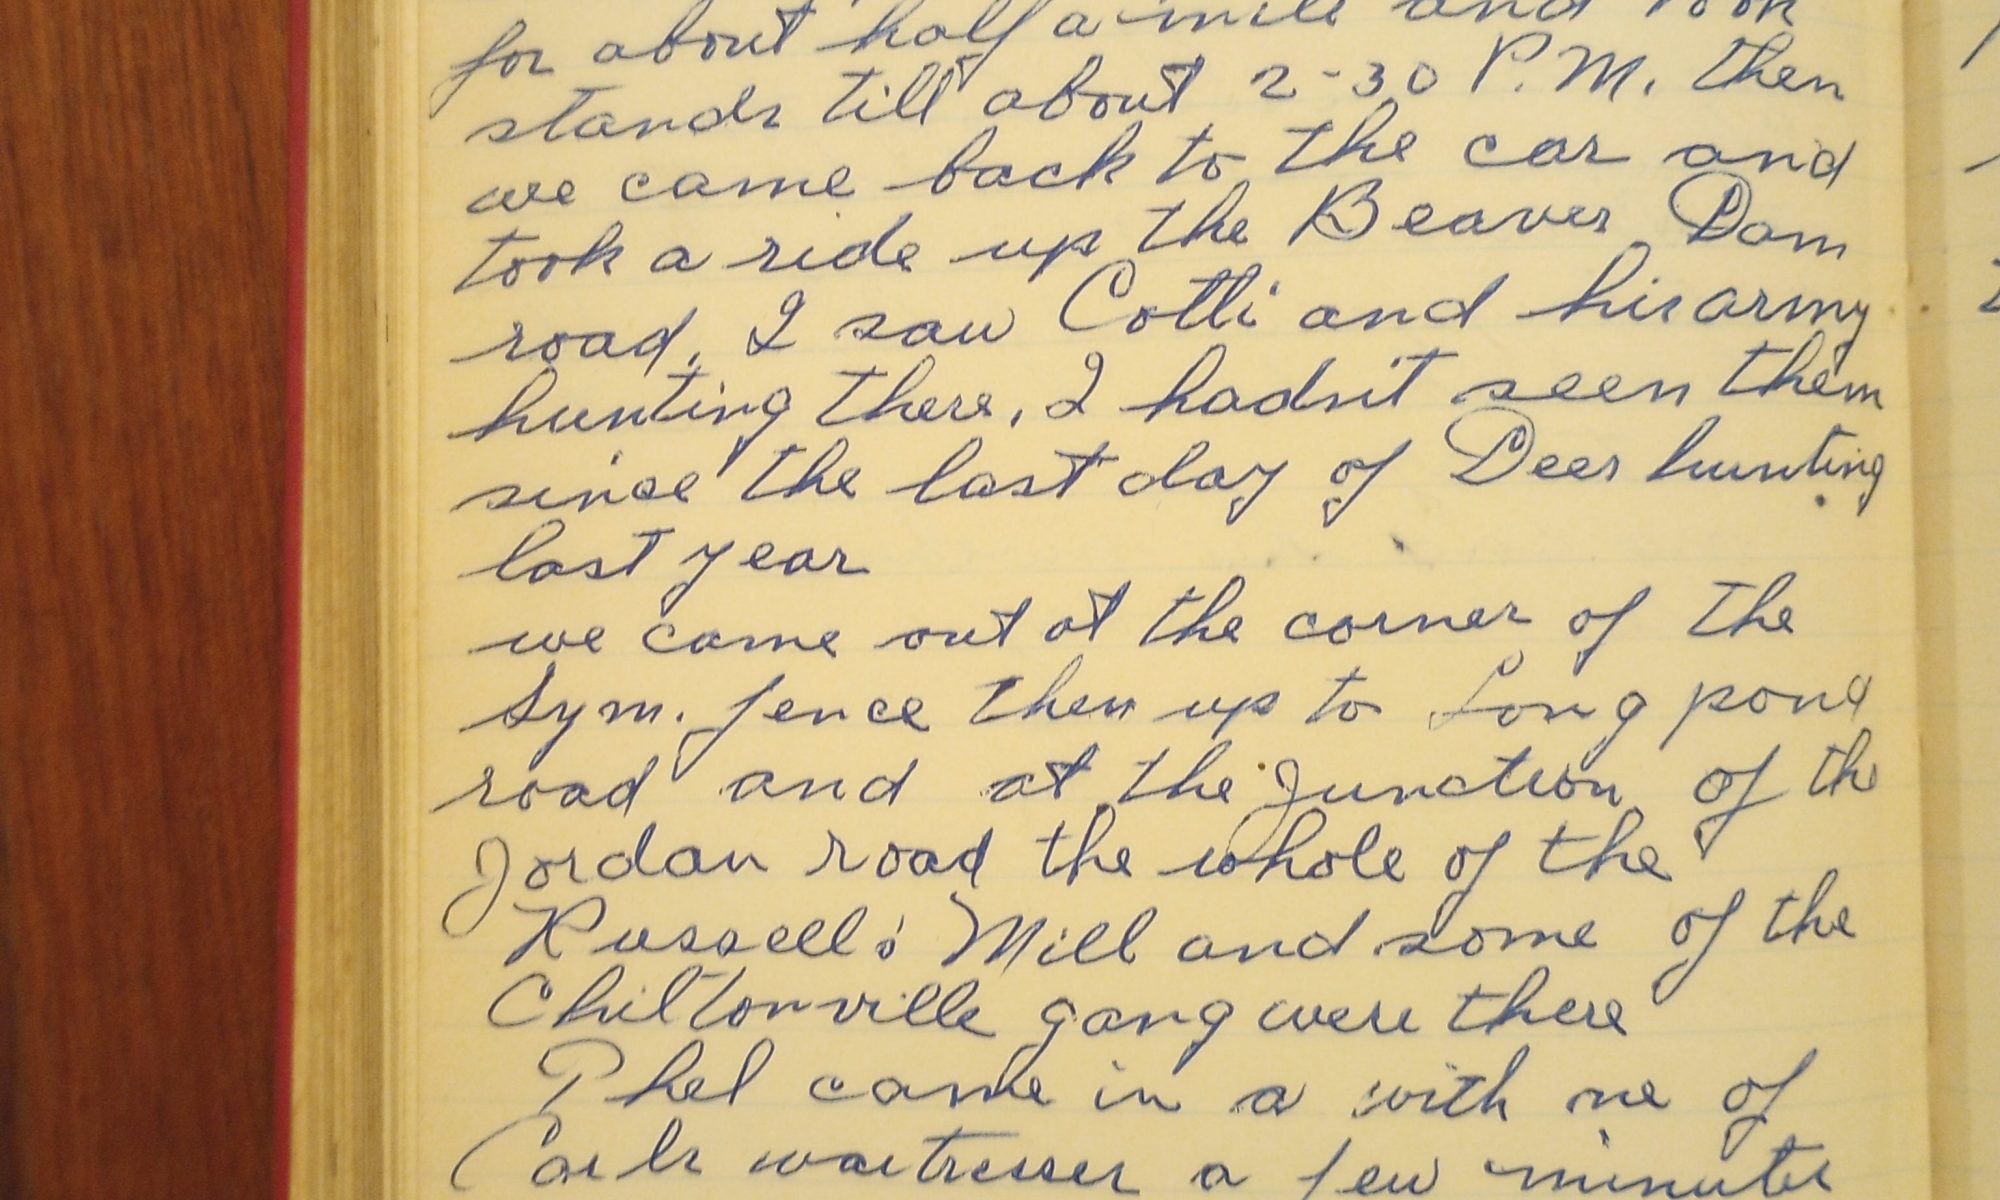 for about half a mile and took
stands till about 2-30 P.M. then
we came back to the car and
took a ride up the Beaver Dam
road, I saw Cotti and his army
hunting there, I hadn't seen them
since the last day of Deer hunting
last year
we came out at the corner of the
Sym. fence then up to Long pond
road and at the Junction of the
Jordan road the whole of the
Russell's Mill and some of the
Chiltonville gang were there
Phel came in a with one of
Carls waitresses a few minutes